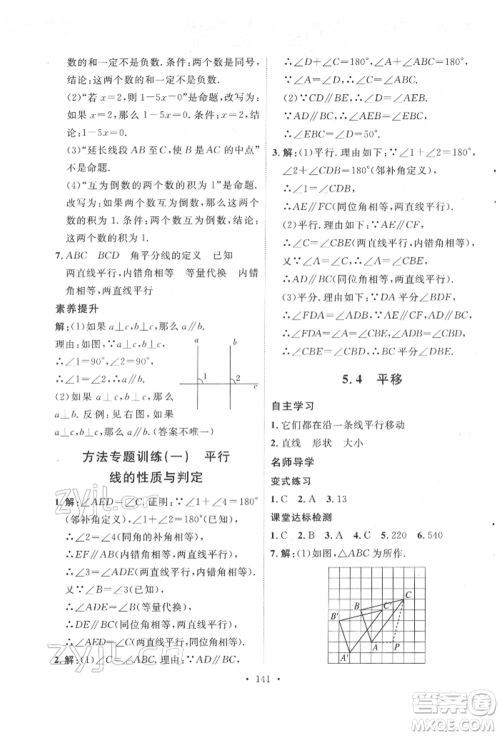 数的和一定不是负数. 条件：两个数是同号，
结论：这两个数的和一定不是负数.
(2)“若 x=2，则 1－5x=0”是命题，改写为：
如果 x=2，那么 1－5x=0. 条件：x=2，结论：
1－5x=0.
(3)“延长线段 AB 至 C，使 B 是 AC 的中点”
不是命题.
(4)“互为倒数的两个数的积为 1”是命题，改
写为：如果两个数互为倒数，那么这两个数
的积为 1. 条件：两个数互为倒数，结论：这
两个数的积为 1.
7. ABC BCD 角平分线的定义 已知
两直线平行，内错角相等 等量代换 内错
角相等，两直线平行
素养提升
解：(1)如果 a⊥c，b⊥c，那么 a∥b.
理由：如图，
∵a⊥c，b⊥c，
∴∠1=90°，
∠2=90°，
∴∠1=∠2，
∴a∥b.
(2)如果 a⊥b，b⊥c，那么
a⊥c. 反例：见右图，a⊥
b，b⊥c，a∥c.(答案不唯一)
1 2 c
方法专题训练(一) 平行
线的性质与判定
1. 解：∠AED=∠C. 证明：∵∠2+∠4=180°
(邻补角定义)，∠1+∠2=180°，
∴∠1=∠4，
∴EF∥AB(内错角相等，两直线平行)，
∴∠3=∠ADE(两直线平行，内错角相等).
∵∠3=∠B，
∴∠B=∠ADE(等量代换)，
∴DE∥BC(同位角相等，两直线平行)，
∴∠AED=∠C(两直线平行，同位角相等).
2. 解：(1)∠A=∠C. 理由：∵AB∥CD，
∴∠D+∠A=180°，
∵AD∥BC，
∴∠D+∠C=180°，∴∠A=∠C.
(2)∵CD∥BE，∴∠D+∠AED=180°，
∵AD∥BC，∴∠C+∠D=180°，
∴∠C=∠AED=50°.
3. 解：(1)平行. 理由如下：∵∠1+∠2=180°，
∠2+∠CDB=180°(邻补角定义)，
∴∠1=∠CDB，
∴AE∥FC(同位角相等，两直线平行).
(2)平行. 理由如下：∵AE∥CF，
∴∠C=∠CBE(两直线平行，内错角相等).
又∵∠A=∠C，∴∠A=∠CBE，
∴AD∥BC(同位角相等，两直线平行).
(3)平分. 理由如下：∵DA 平分∠BDF，
∴∠FDA=∠ADB.
∵AE∥CF，AD∥BC，
∴∠FDA=∠A=∠CBE，∠ADB=∠CBD，
∴∠CBE=∠CBD，
∴BC 平分∠DBE.
5.4 平移
自主学习
1. 它们都在沿一条线平行移动
2. 直线 形状 大小
名师导学
变式练习
1. C 2. A 3. 13
课堂达标检测
1. C 2. A 3. A 4. C 5. 220 6. 540
7. 解：(1)如图，△ABC 为所求作：
C
B
B'
A
P
A'
· 141 ·
zyjl.cn
答案圈
MXQE.COM